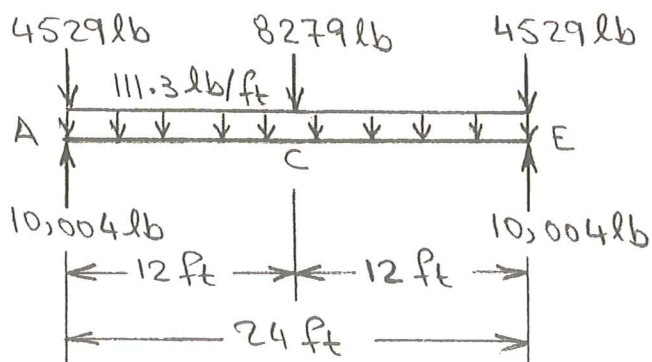 4529 lb 8279 lb 4529 lb
111.3 lb/ft
A E
C
10,004 lb 10,004 lb
12 ft 12 ft
24 ft